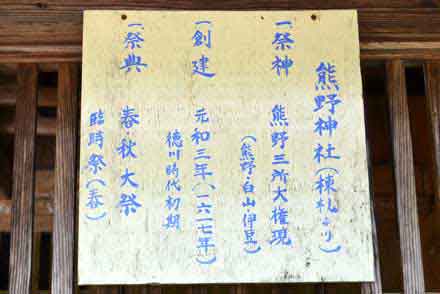 熊野神社(棟札より)
一祭神 熊野三所大権現
(熊野・白山伊豆)
一創建 元和三年(一六一七年)
徳川時代初期
一祭典 春・秋大祭
臨時祭(春)